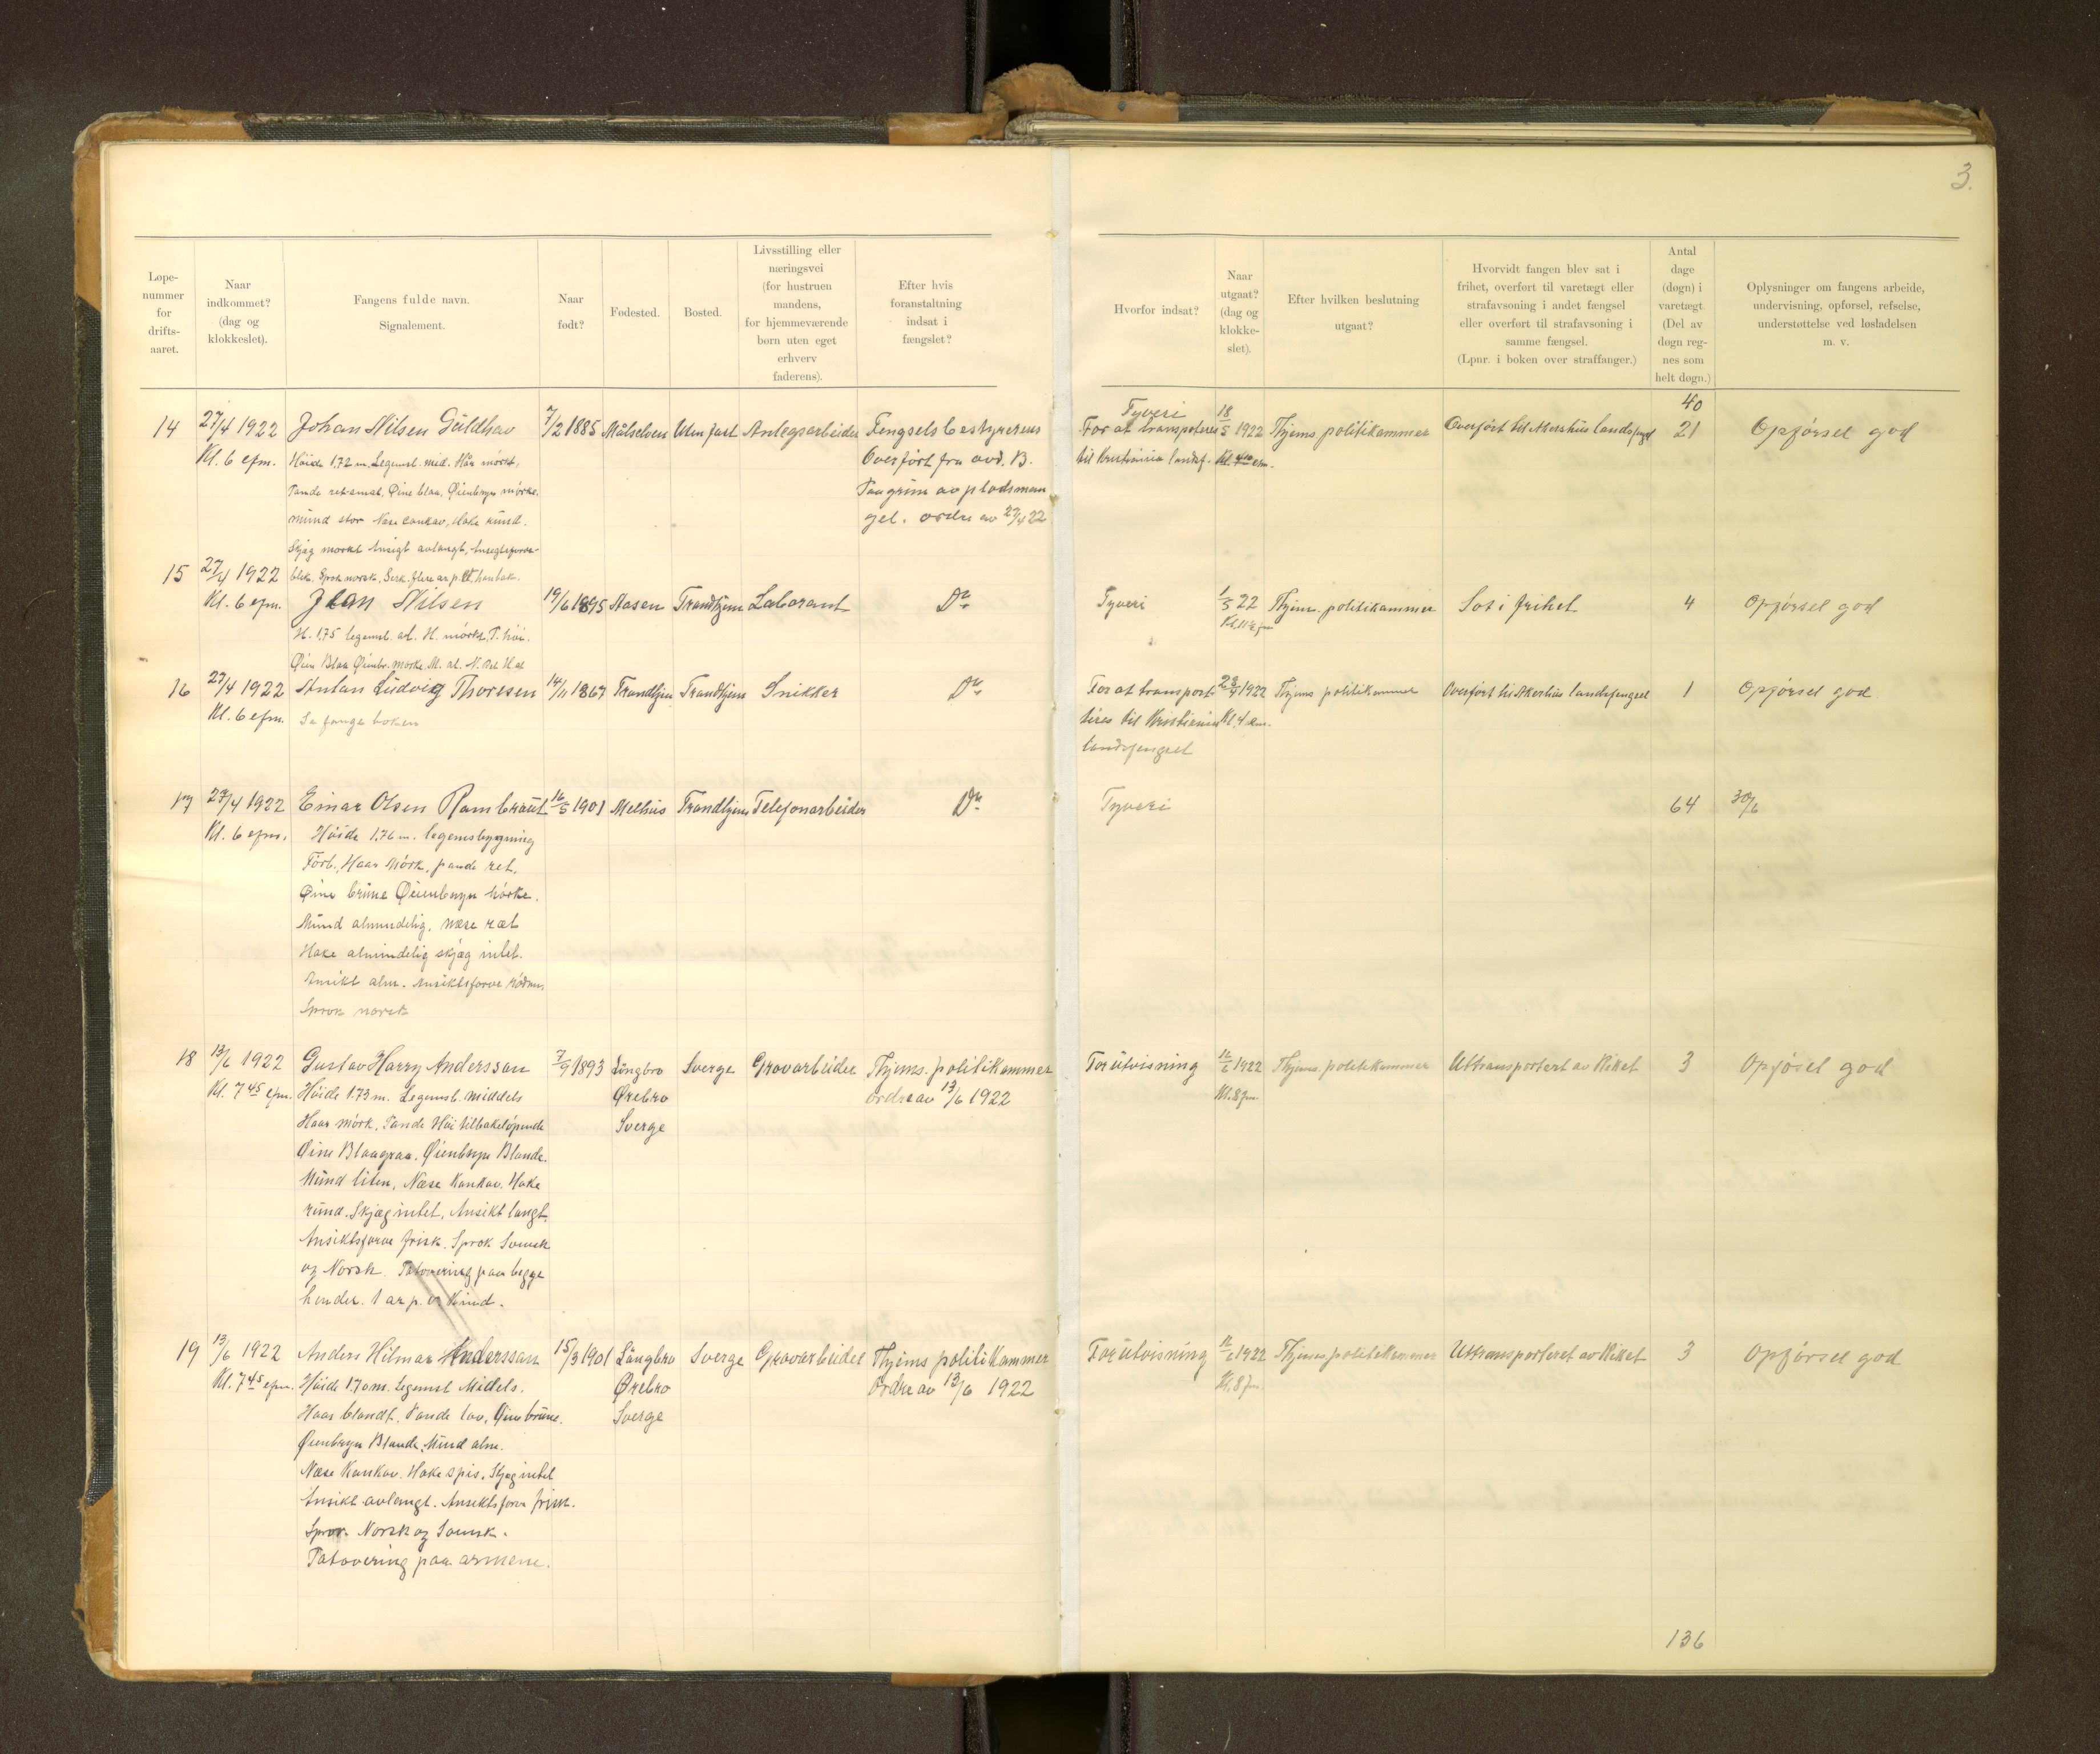 3.
Løpe-
nummer
for
drifts-
aaret.
Naar
indkommet?
(dag og
klokkeslet).
Fangens fulde navn.
Signalement.
Naar
født?
Fødested.
Bosted.
Livsstilling eller
næringsvei
(for hustruen
mandens,
for hjemmeværende
børn uten eget
erhverv
faderens).
Efter hvis
foranstaltning
indsat i
fængslet?
Hvorfor indsat?
Naar
utgaat?
(dag og
klokke-
slet).
Efter hvilken beslutning
utgaat?
Hvorvidt fangen blev sat i
frihet, overført til varetægt eller
strafavsoning i andet fængsel
eller overført til strafavsoning i
samme fængsel.
(Lpnr. i boken over straffanger.)
Antal
dage
(døgn) i
varetægt.
(Del av
døgn reg-
nes som
helt døgn.)
Oplysninger om fangens arbeide,
undervisning, opførsel, refselse,
understøttelse ved løsladelsen
m. v.
14 27/4 1922 Johan Nilsen Guldhav 7/2 1885 Målselven Uten fast Anlegsarbeider Fengselsbestyrerens
Kl. 6 efm. Høide 1.72 m. Legemsb. mid. Hår mørkt.
Overført fra avd. B.
Øine blaa, Øienbryn mørke.
Paagrun av pladsman
mund stor Næse konkav, Hake rund.
gel. ordre av 27/4 22
Skjæg mørkt Ansigt avlangt, Ansigtsfarve
Tyveri
For at transporteres
til Kristiania landsf.
18/5 1922
Thjems politikammer
Overført til Akershus landsfengsel
40
21
Opførsel god
15 27/4 1922
Kl. 6 efm. Jean Nilsen 19/6 1895 Aasen Trondhjem Laborant Do
H. 1.75 legemsb. al. H. mørkt, P. høi.
Øine Blaa Øienbr. mørke. M. al. N. ret H. al
Tyveri 1/5 22 Thjem. politikammer Sat i frihet 4 Opførsel god
16 27/4 1922 Anton Ludvig Thoresen 14/11 1867 Trondhjem Trondhjem Snikker Do
Kl. 6 efm. Se fange boken
For at transpor-
teres til Kristiania
landsfengsel
28/4 1922
Kl. 4 em.
Thjems politikammer Overført til Akershus landsfengsel 1 Opførsel god
17 27/4 1922 Einar Olsen Rambraut 16/5 1901 Melhus Trondhjem Telefonarbeider Do
Kl. 6 efm. Høide 1.76 m. legemsbygning
Førb. Haar Mørk, pande ret.
Øine brune Øienbryn Mørke.
Mund almindelig, næse ræt
Hake almindelig skjæg intet.
Ansikt alm. Ansiktsfarve rødm.
Sprok norsk
Tyveri 64 30/6
18 13/6 1922 Gustav Harry Anderssan 7/9 1893 Längbro Sverge Gravarbeider Thjems. politikammer
Kl. 7 45 efm. Høide 1.73 m. Legemsb. middels Ørebro ordre av 13/6 1922
Haar mørk, Pande Høi tilbakeløpende Sverge
Øine Blaagraa. Øienbryn Blande.
Mund liten, Næse Konkav. Hake
rund. Skjæg intet, Ansikt langt.
Ansiktsfarve frisk. Sprok Svensk
og Norsk. Tatovering paa begge
hender. 1 ar p. v. Kind.
For utvisning 16/6 1922 Thjems politikammer Uttransportert av Riket 3 Opførsel god
Kl. 8 fm.
19 13/6 1922 Anders Hilmar Anderssan 15/3 1901 Längbro Sverge Gravarbeider Thjems politikammer
Kl. 7 45 efm. Høide 1.70 m. Legemsb Middels. Ørebro Ordre av 13/6 1922
Haar blandt, Pande lav, Øine brune. Sverge
Øienbryn Blande, Mund alm.
Næse Konkav. Hake spis. Skjæg intet
Ansikt avlangt. Ansiktsfarve frisk.
Sprok. Norsk og Svensk.
Tatovering paa armene.
For utvisning 16/6 1922 Thjems politikammer Uttransporteret av Riket 3 Opførsel god
Kl. 8 fm.
136